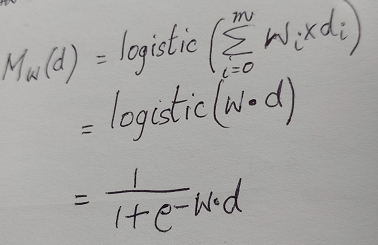 M_w(d) = logistic(∑_{i=0}^{m} w_i × d_i)
= logistic(w • d)
= 1 / (1 + e^{-w•d})